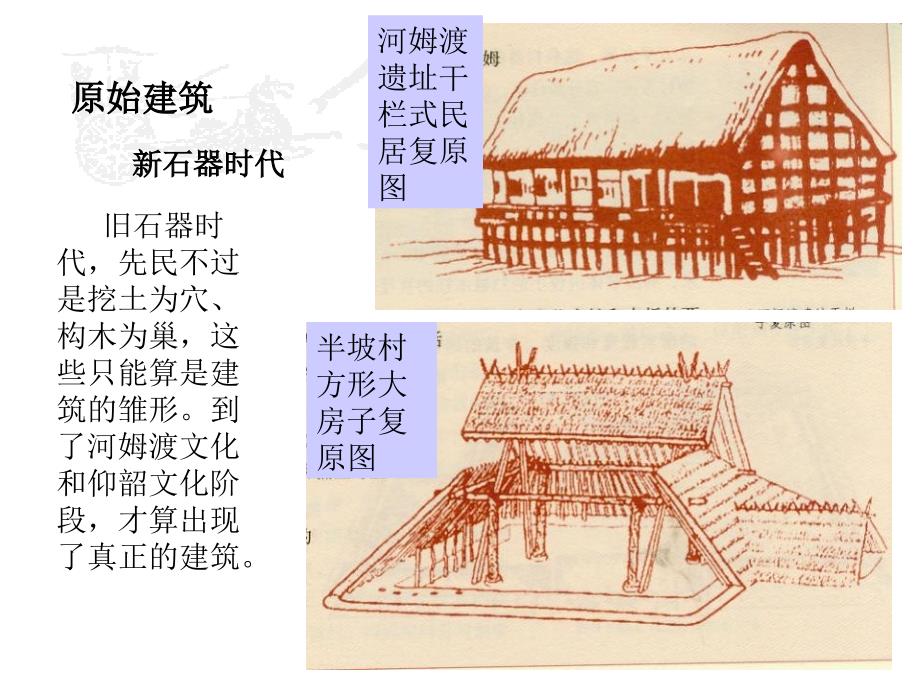 原始建筑
新石器时代
旧石器时
代，先民不过
是挖土为穴、
构木为巢，这
些只能算是建
筑的雏形。到
了河姆渡文化
和仰韶文化阶
段，才算出现
了真正的建筑。
河姆渡
遗址干
栏式民
居复原
图
姆
子复原图
半坡村
方形大
房子复
原图
的